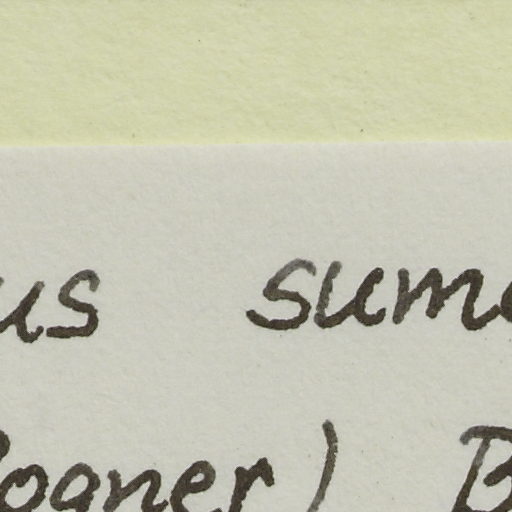 us sume
oaner) B